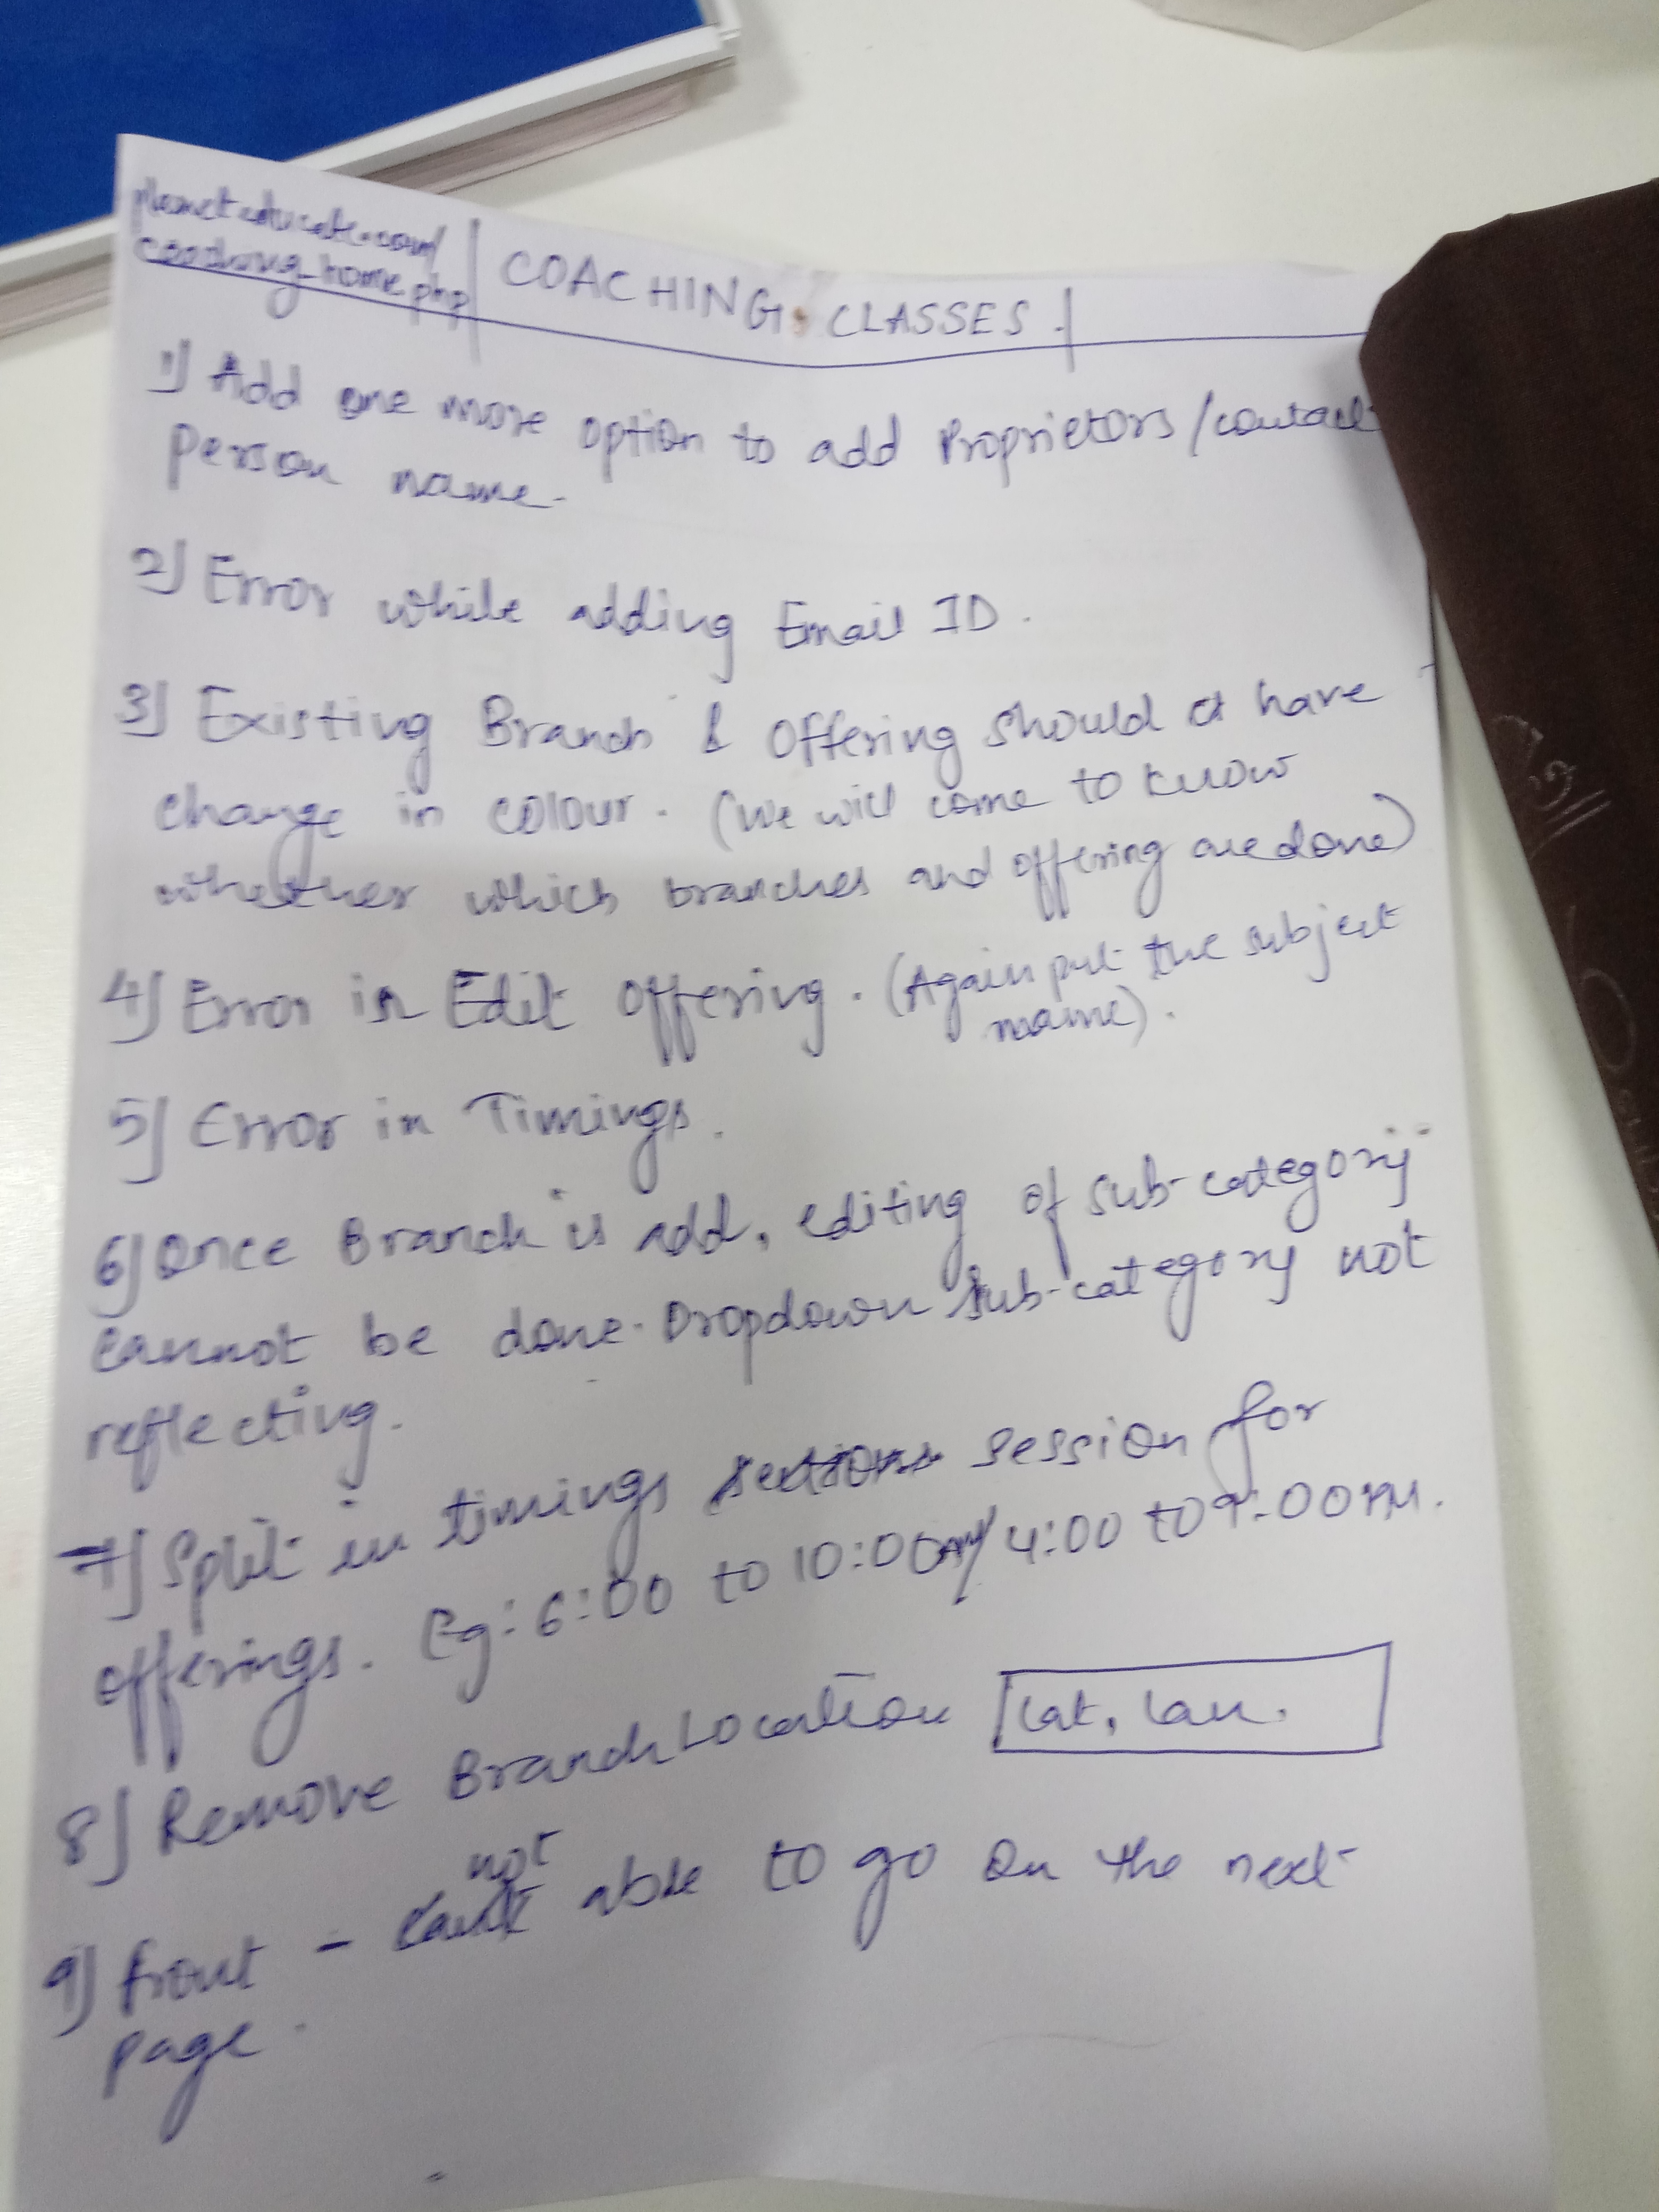 planeteducate.com/
coaching_home.php
COACHING CLASSES.
1) Add one more option to add Proprietors/contact
person name.
2) Error while adding Email ID.
3) Existing Branch & Offering should have
change in colour. (We will come to know
whether which branches and offering are done)
4) Error in Edit offering. (Again put the subject
name).
5) Error in Timings.
6) Once Branch is add, editing of sub-category
cannot be done. Dropdown sub-category not
reflecting.
7) Split in timings session for
offerings. Eg: 6:00 to 10:00AM/4:00 to 9:00PM.
8) Remove Branch Location Lat, Lan.
not
9) front - able to go on the next
page.